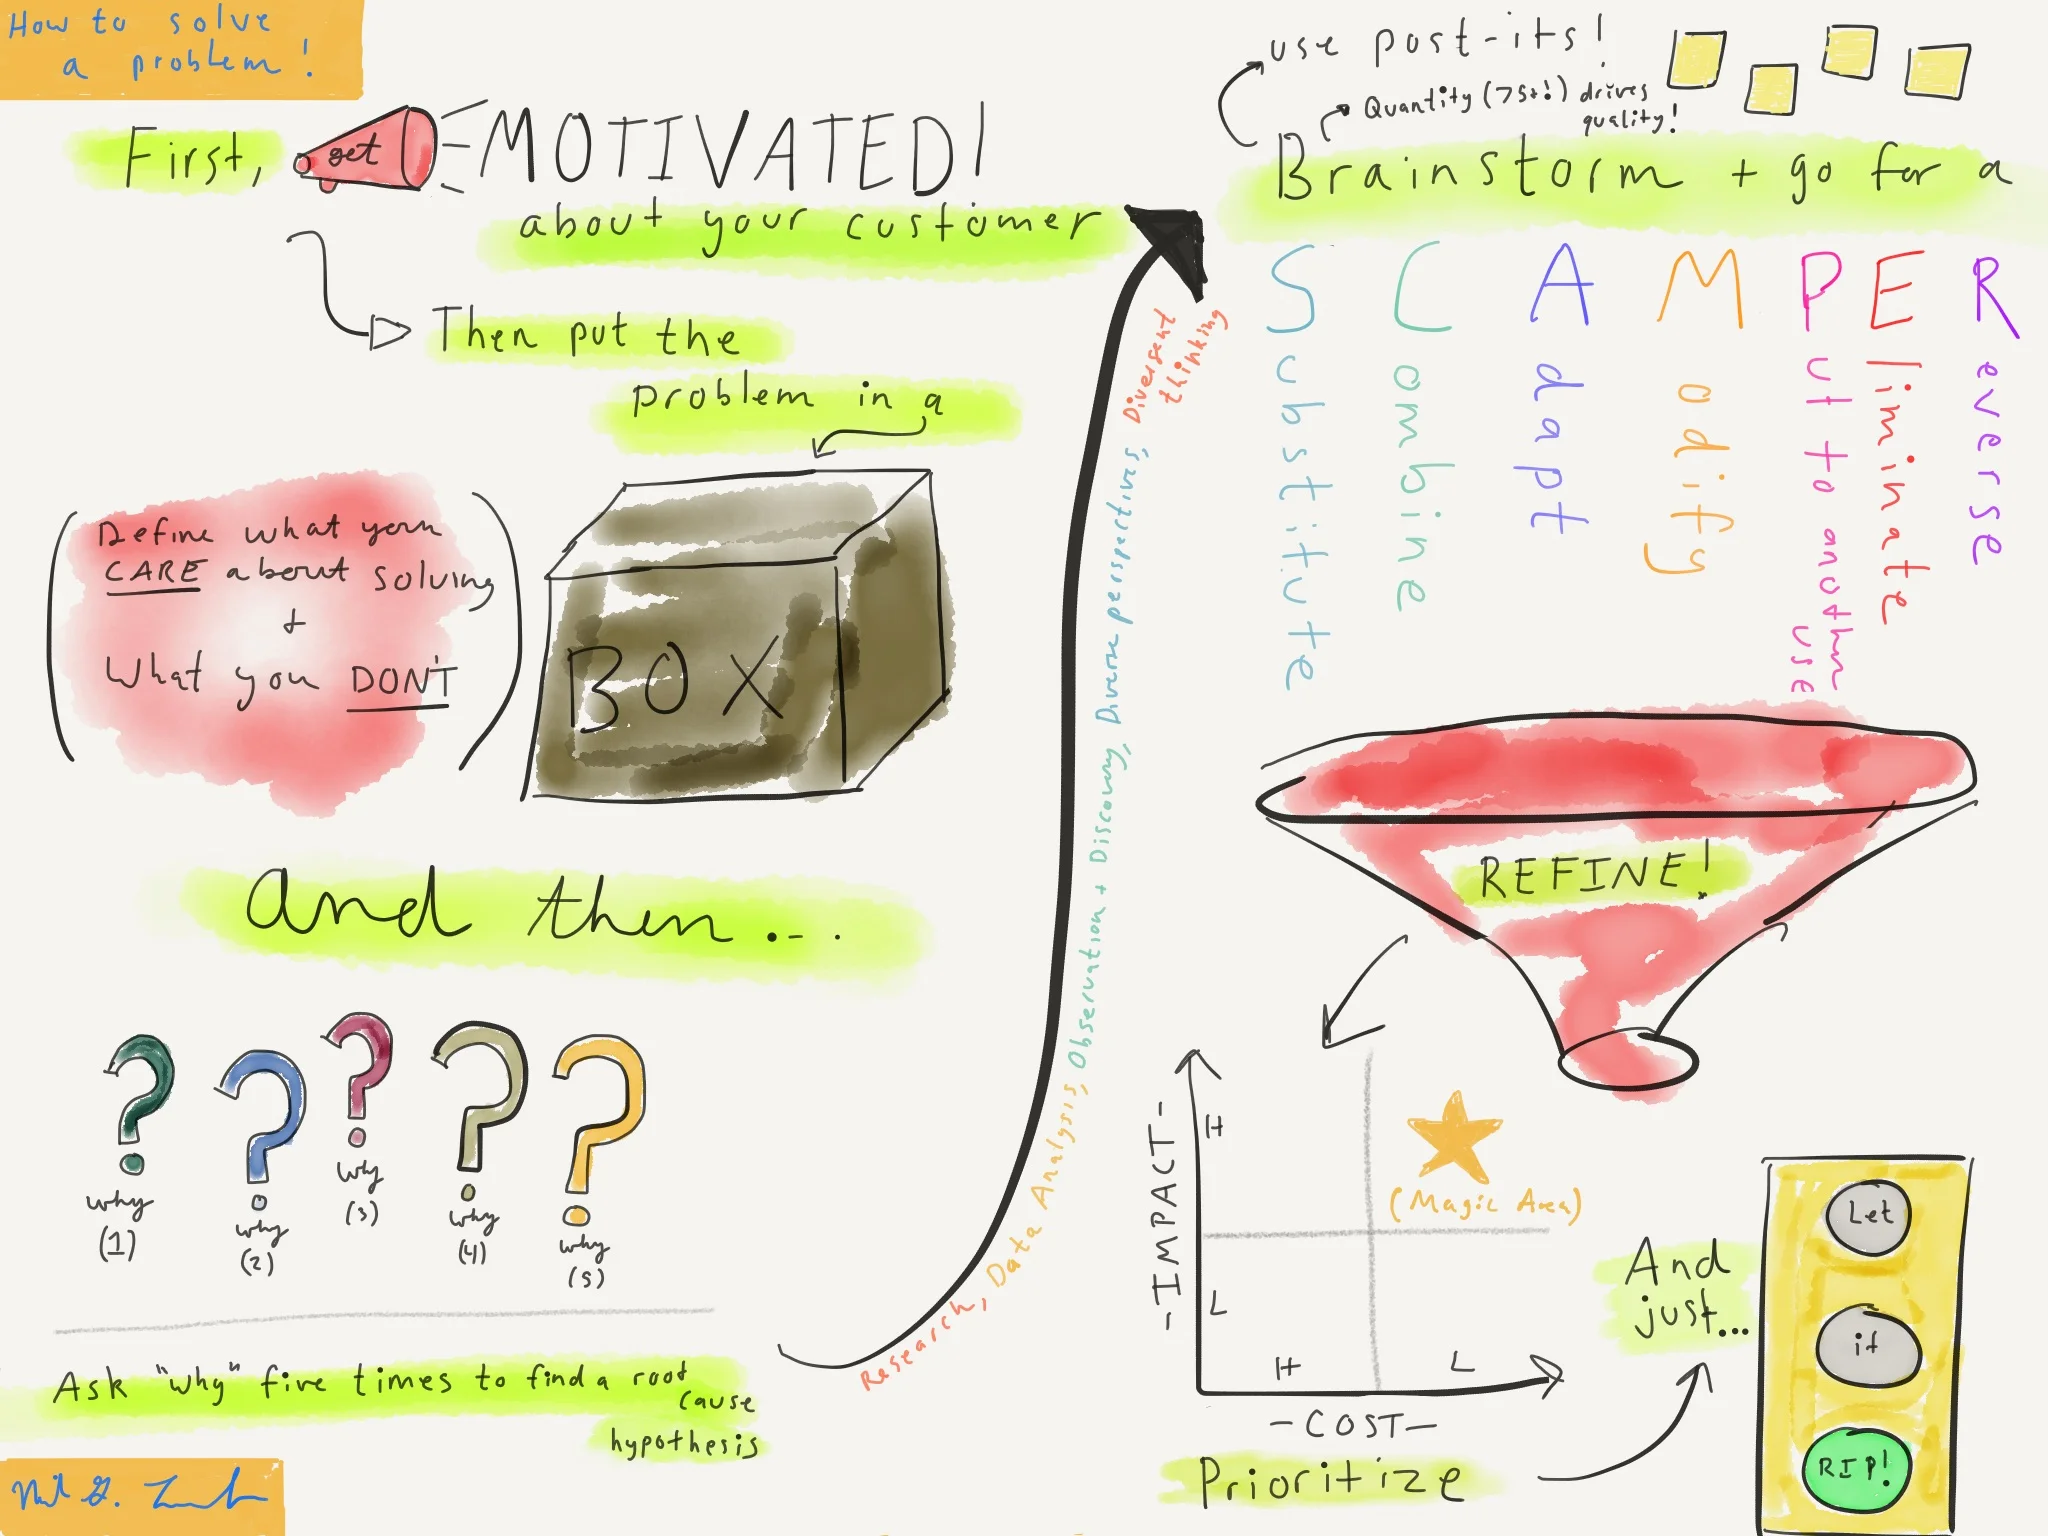 How to solve
a problem!
First,
get
MOTIVATED!
about your customer
Then put the
problem in a
Define what you
CARE about solving
+
What you DON'T
BOX
And then...
why
(1)
why
(2)
why
(3)
why
(4)
why
(5)
Ask "why" five times to find a root
cause
hypothesis
Research, Data Analysis, Observation + Discovery, Diverse perspectives, Divergent
thinking
use post-its!
Quantity (75+!) drives
quality!
Brainstorm + go for a
Substitute
Combine
Adapt
Modify
Put to another
use
Eliminate
Reverse
REFINE!
-IMPACT-
H
L
(Magic Area)
H
L
-COST-
Prioritize
And
just...
Let
it
RIP!